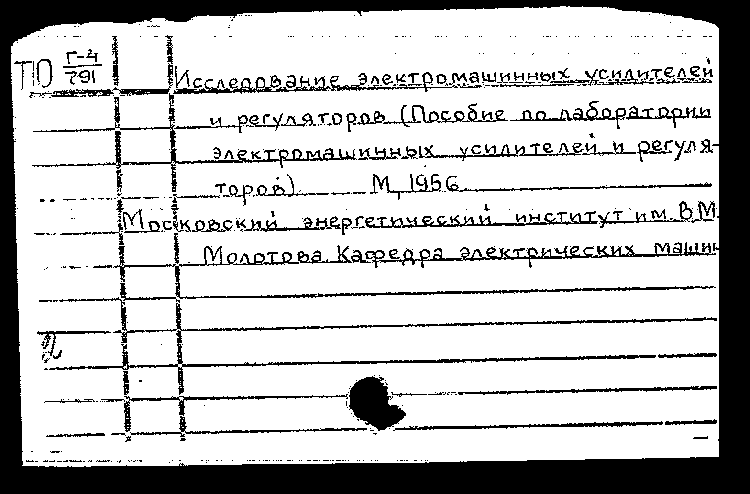 ТЮ Г-4/791 Исследование электромашинных усилителей
и регуляторов (Пособие по лаборатории
электромашинных усилителей и регуля-
торов) М, 1956
Московский энергетический институт им. В.М.
Молотова. Кафедра электрических машин